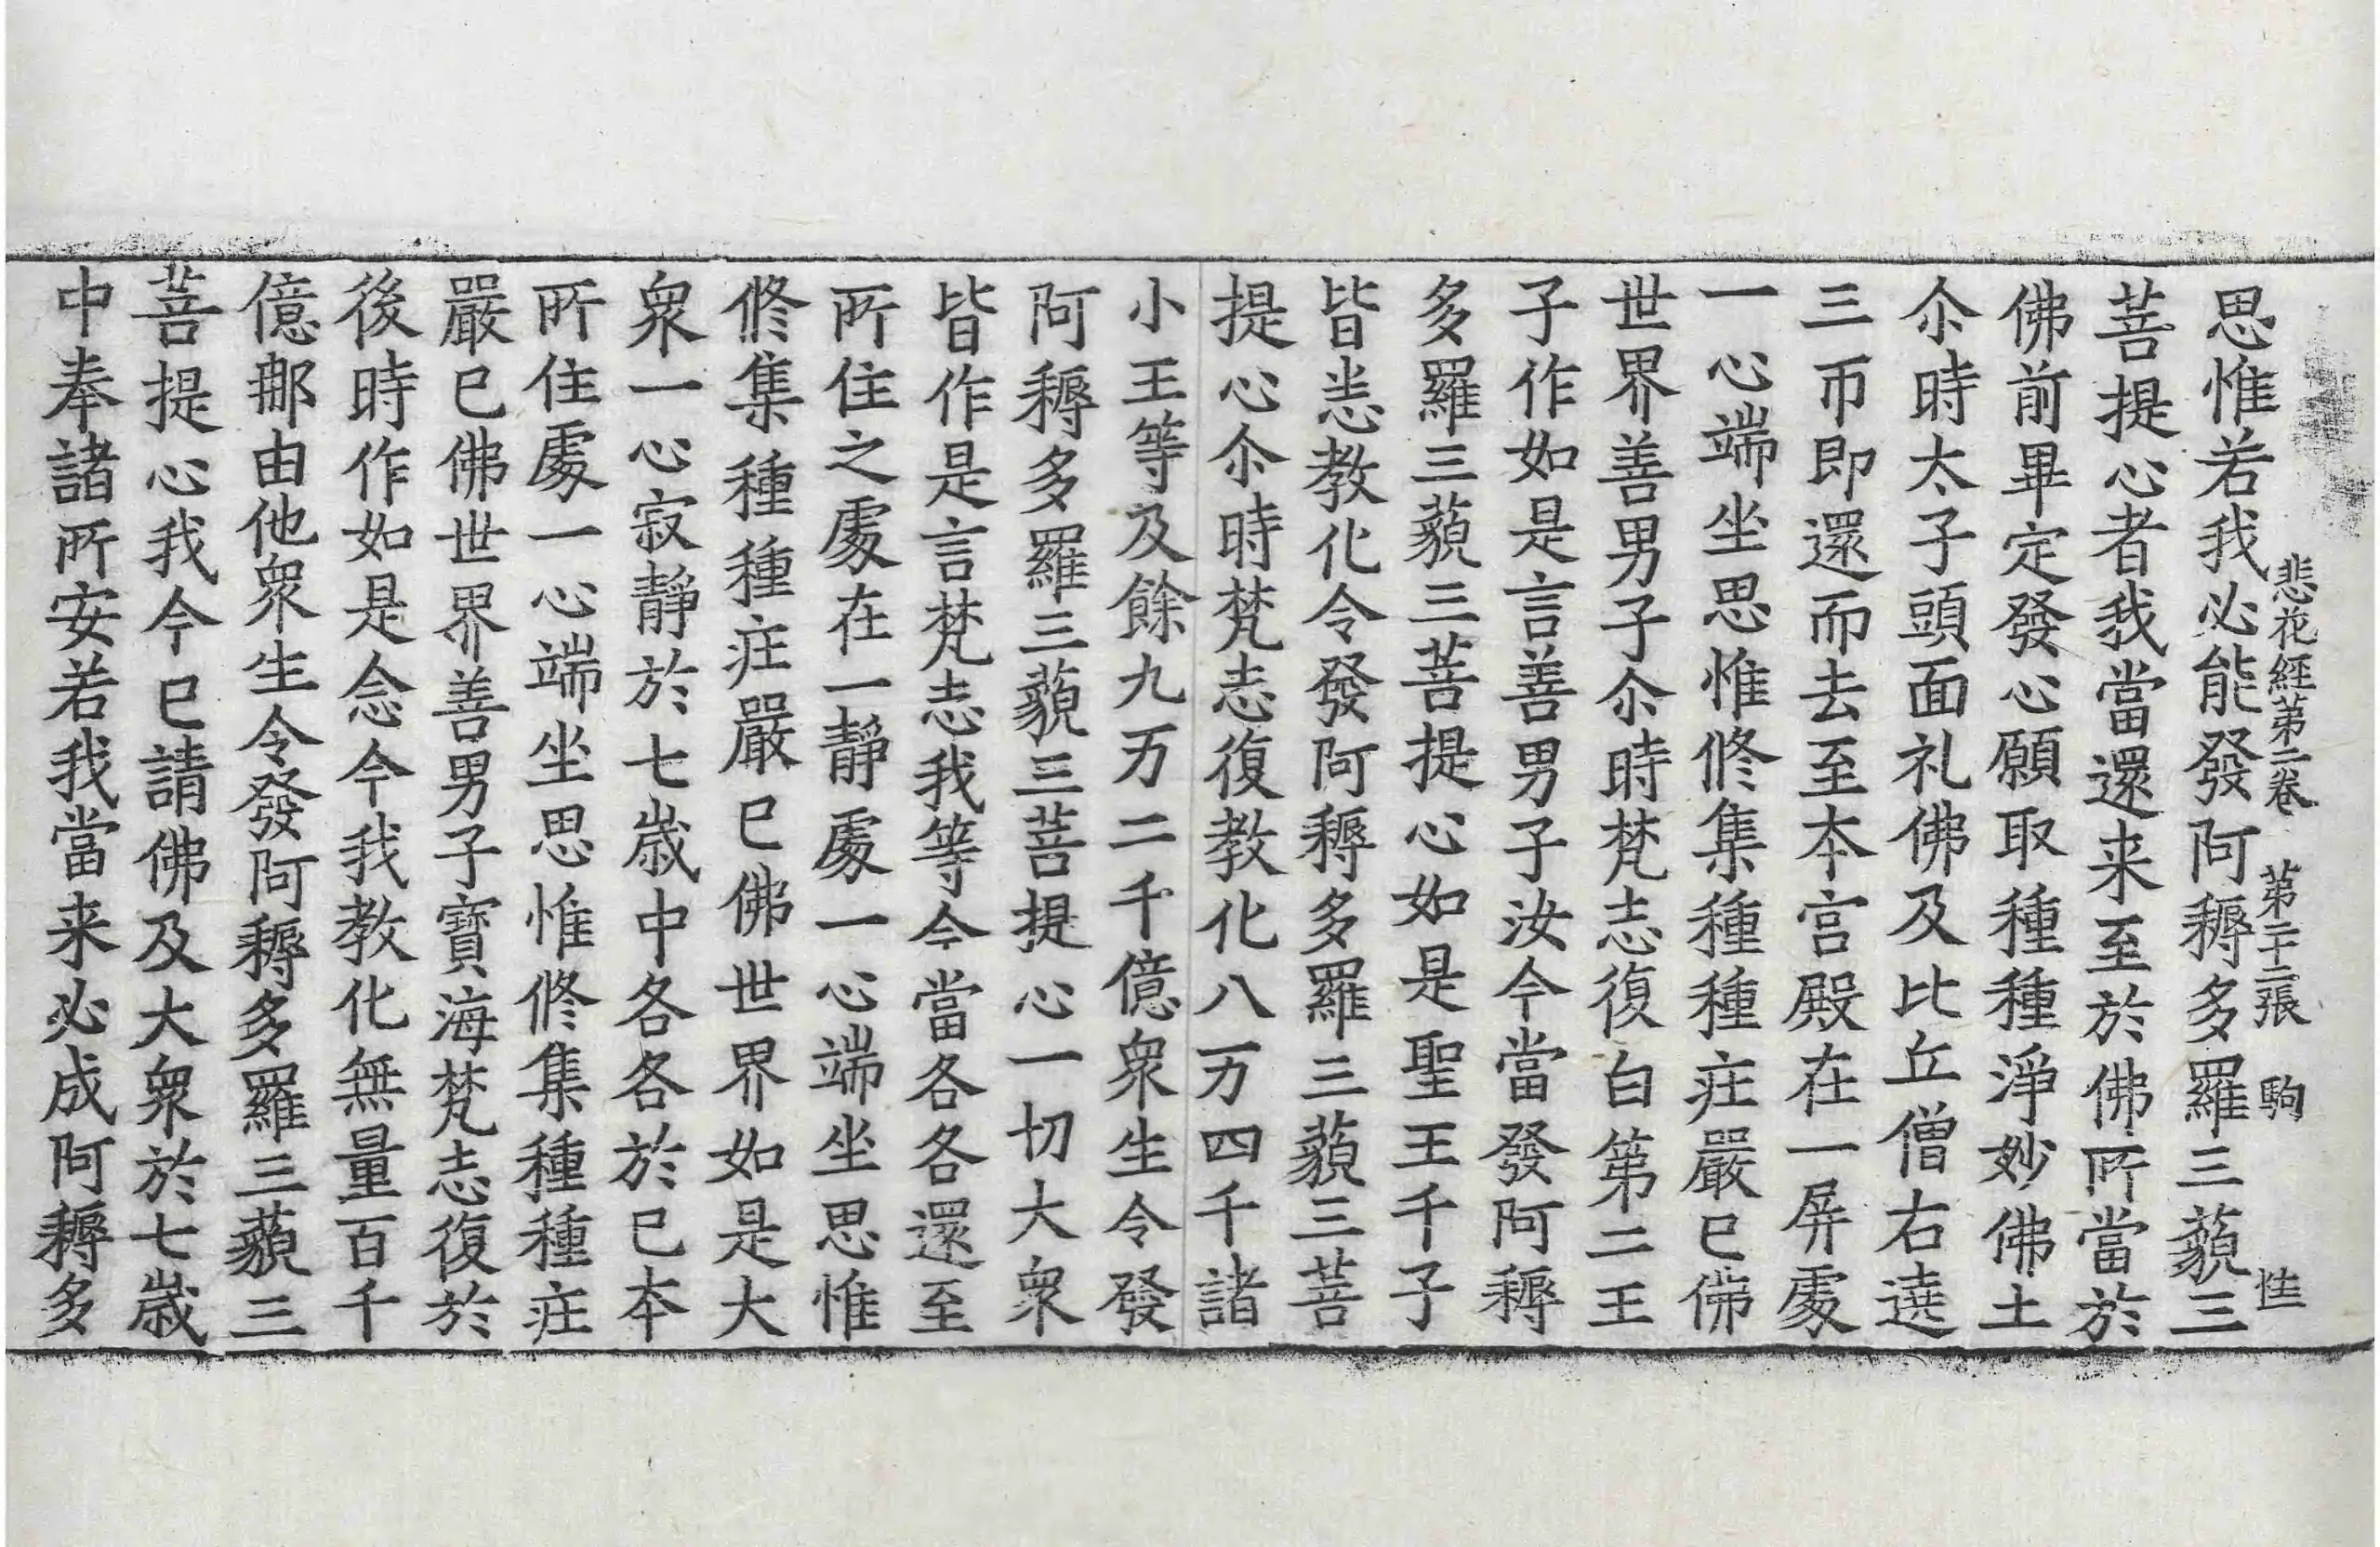 悲花經第二卷　第二十二張　駒　惟
思惟若我必能發阿耨多羅三藐三
菩提心者我當還来至於佛所當於
佛前畢定發心願取種種淨妙佛土
尒時太子頭面礼佛及比丘僧右遶
三帀即還而去至本宫殿在一屏處
一心端坐思惟修集種種莊嚴已佛
世界善男子尒時梵志復白第二王
子作如是言善男子汝今當發阿耨
多羅三藐三菩提心如是聖王千子
皆悉教化令發阿耨多羅三藐三菩
提心尒時梵志復教化八万四千諸
小王等及餘九万二千億衆生令發
阿耨多羅三藐三菩提心一切大衆
皆作是言梵志我等今當各各還至
所住之處在一静處一心端坐思惟
修集種種莊嚴已佛世界如是大
衆一心寂静於七歲中各各於已本
所住處一心端坐思惟修集種種莊
嚴已佛世界善男子寶海梵志復於
後時作如是念今我教化無量百千
億那由他衆生令發阿耨多羅三藐三
菩提心我今已請佛及大衆於七歲
中奉諸所安若我當来必成阿耨多